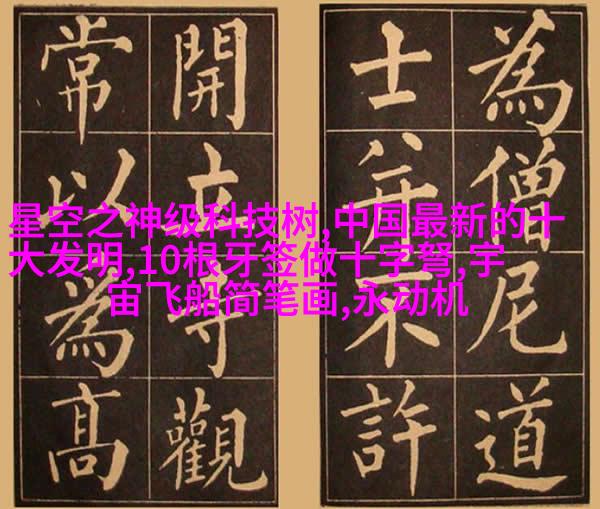 為僧尼道
士并不許
開立寺觀
常以為高
星空之神级科技树,中国最新的十
大发明,10根牙签做十字弩,宇
宙飞船简笔画,永动机